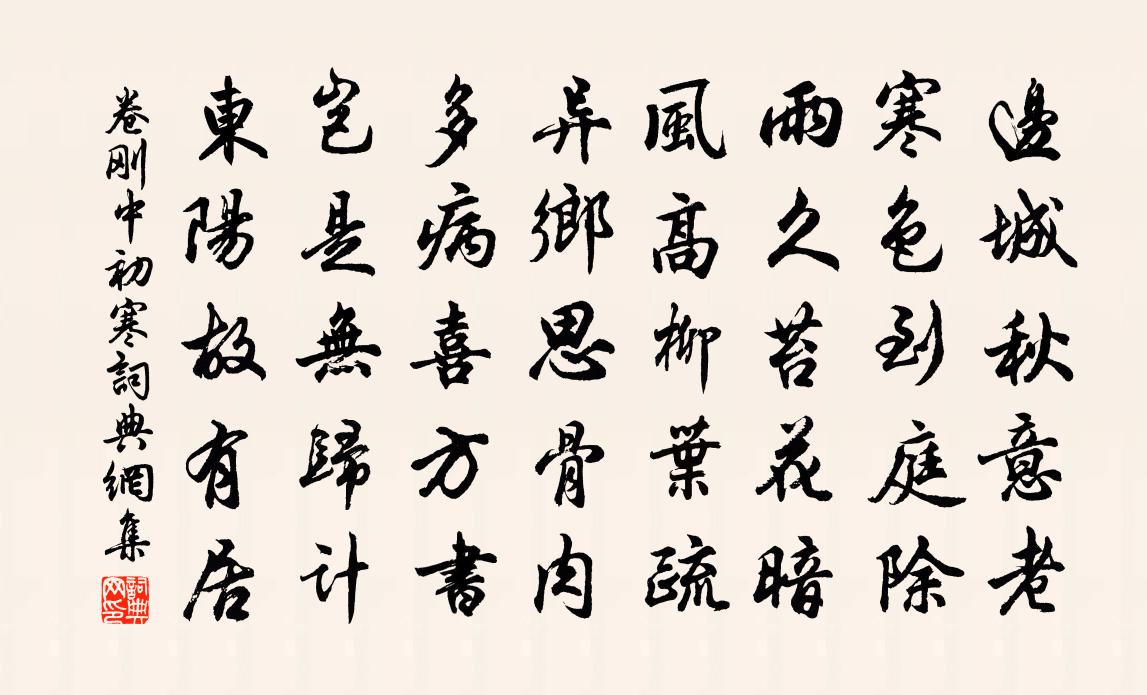 邊城秋意老
寒色到庭除
雨久苔花暗
風高柳葉疏
异鄉思骨肉
多病喜方書
豈是無歸計
東陽故有居
卷剛中初寒詞典網集
詞典網印